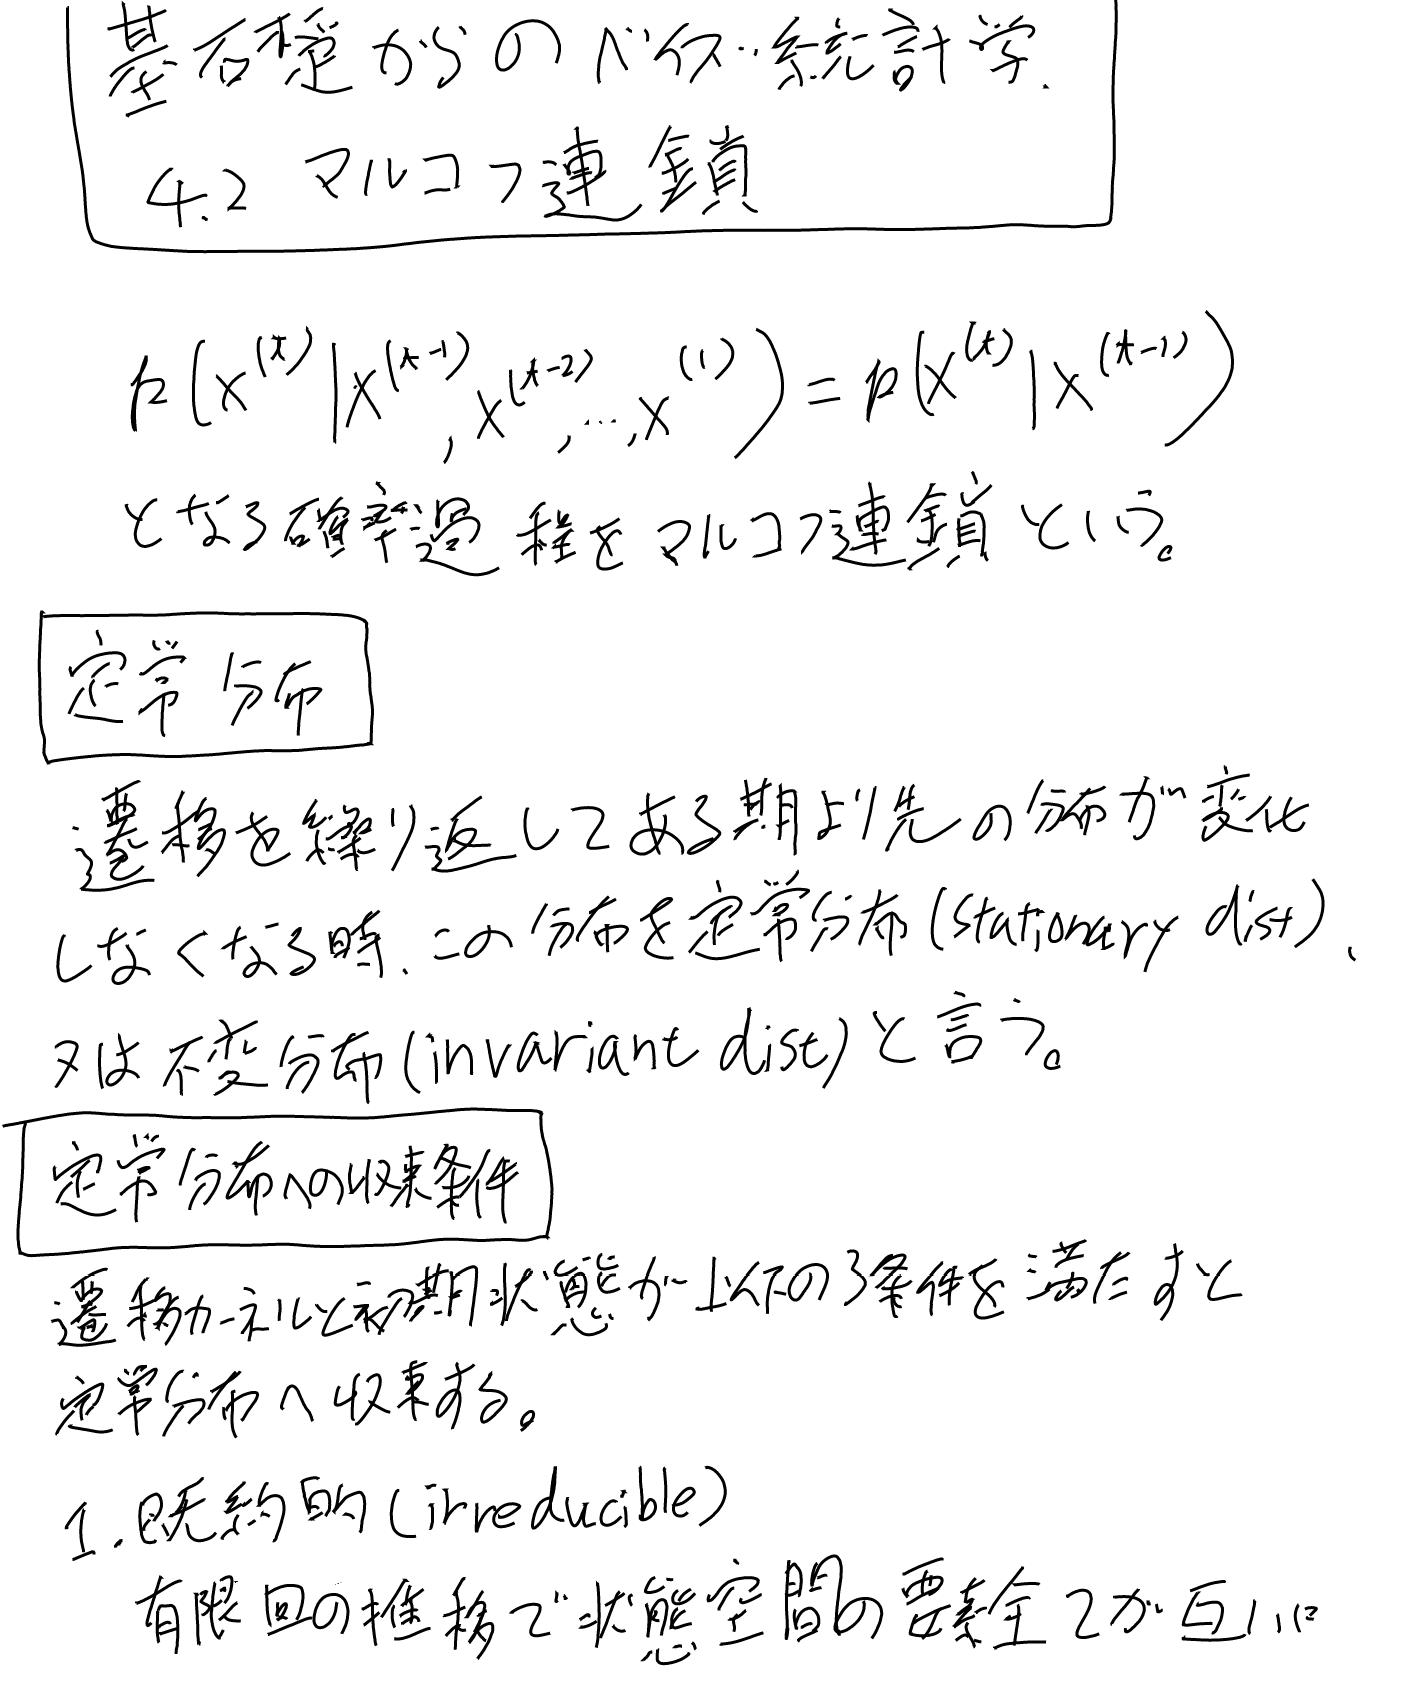 基礎からのベイズ統計学.
4.2 マルコフ連鎖
p(x^(t)|x^(t-1), x^(t-2), …, x^(1)) = p(x^(t)|x^(t-1))
となる確率過程をマルコフ連鎖という。
定常分布
遷移を繰り返してある期より先の分布が変化
しなくなる時、この分布を定常分布(stationary dist)、
又は不変分布(invariant dist)と言う。
定常分布への収束条件
遷移カーネルと初期状態が以下の3条件を満たすと
定常分布へ収束する。
1. 既約的(irreducible)
有限回の推移で状態空間の要素全てが互いに